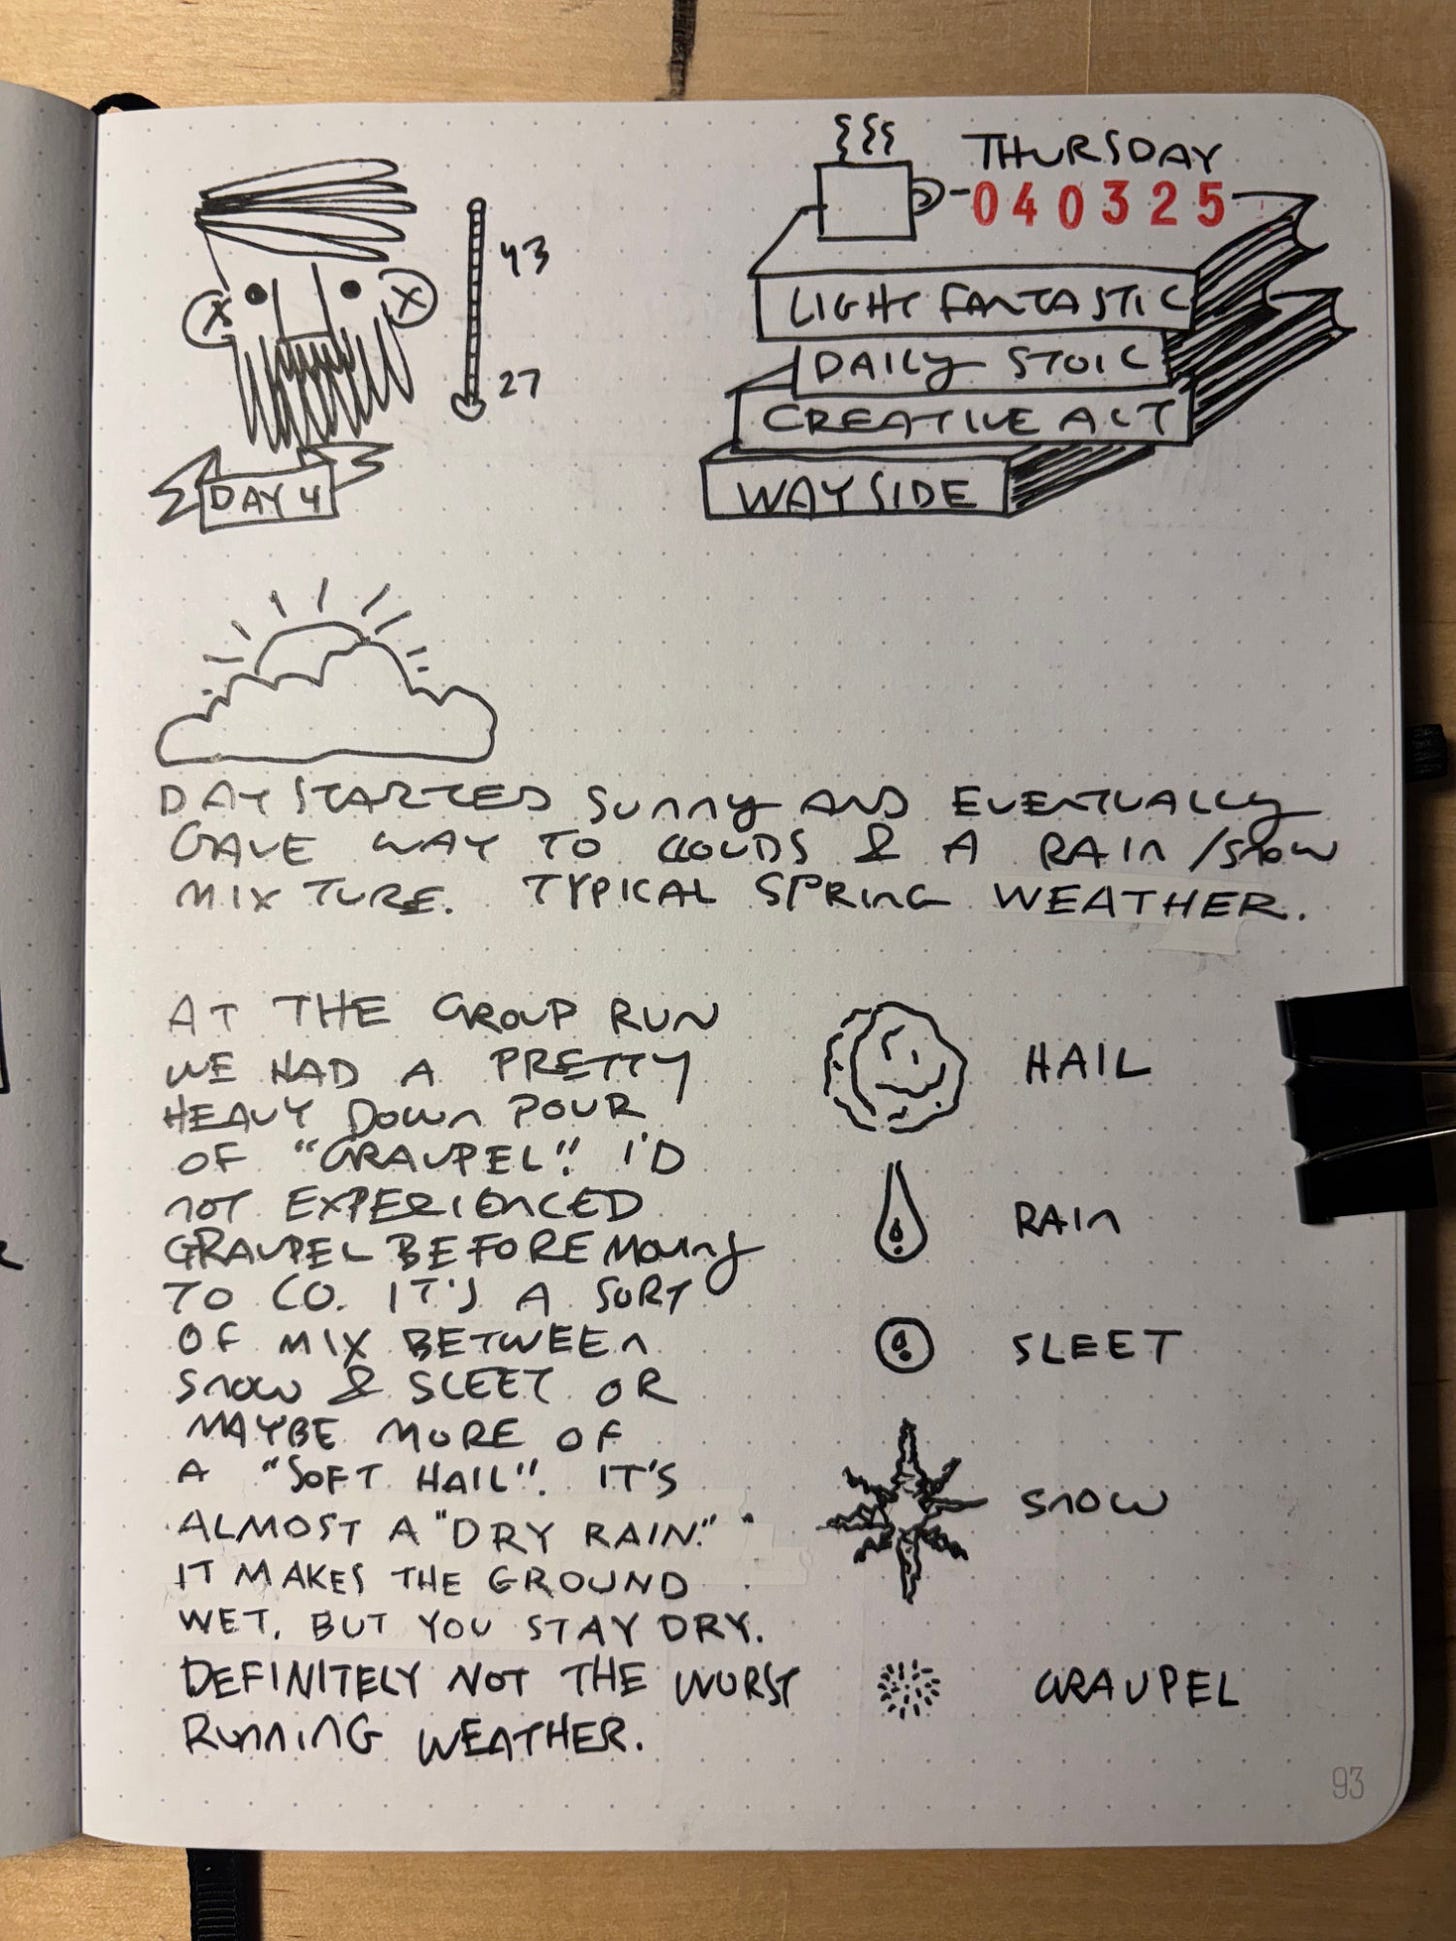 THURSDAY
040325
43
27
DAY 4
LIGHT FANTASTIC
DAILY STOIC
CREATIVE ACT
WAYSIDE
DAY STARTED SUNNY AND EVENTUALLY
GAVE WAY TO CLOUDS & A RAIN/SNOW
MIXTURE. TYPICAL SPRING WEATHER.
AT THE GROUP RUN
WE HAD A PRETTY
HEAVY DOWN POUR
OF "GRAUPEL". I'D
NOT EXPERIENCED
GRAUPEL BEFORE MOVING
TO CO. IT'S A SORT
OF MIX BETWEEN
SNOW & SLEET OR
MAYBE MORE OF
A "SOFT HAIL". IT'S
ALMOST A "DRY RAIN."
IT MAKES THE GROUND
WET, BUT YOU STAY DRY.
DEFINITELY NOT THE WORST
RUNNING WEATHER.
HAIL
RAIN
SLEET
SNOW
GRAUPEL
93